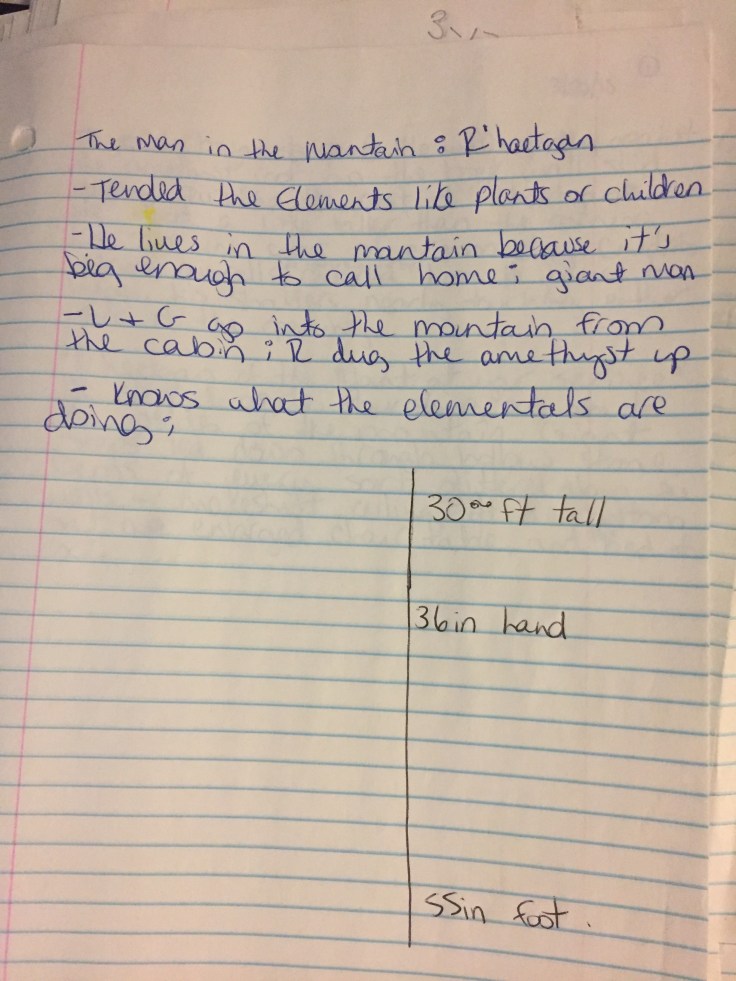 The Man in the Mantain : R'haetagan
- Tended the Elements like plants or children
- He lives in the mantain because it's
big enough to call home ; giant man
- L + G go into the mountain from
the cabin ; R dug the amethyst up
- Knows what the elementals are
doing ;
30 ft tall
36in hand
55in foot .